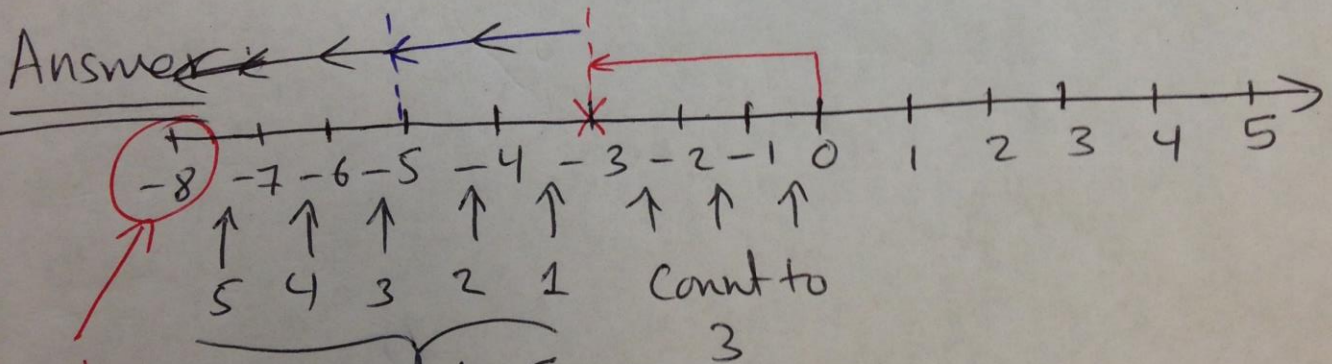 Answer:
-8 -7 -6 -5 -4 -3 -2 -1 0 1 2 3 4 5
5 4 3 2 1 Count to
3